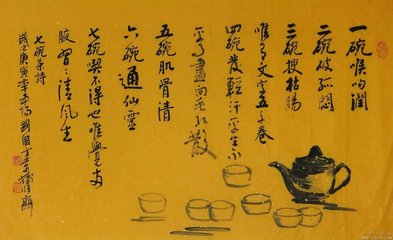 一碗喉吻潤
二碗破孤悶
三碗搜枯腸
唯有文字五千卷
四碗發輕汗平生不
平事盡向毛孔散
五碗肌骨清
六碗通仙靈
七碗喫不得也唯覺两
腋習〻清風生
七碗茶詩
歲次庚寅年